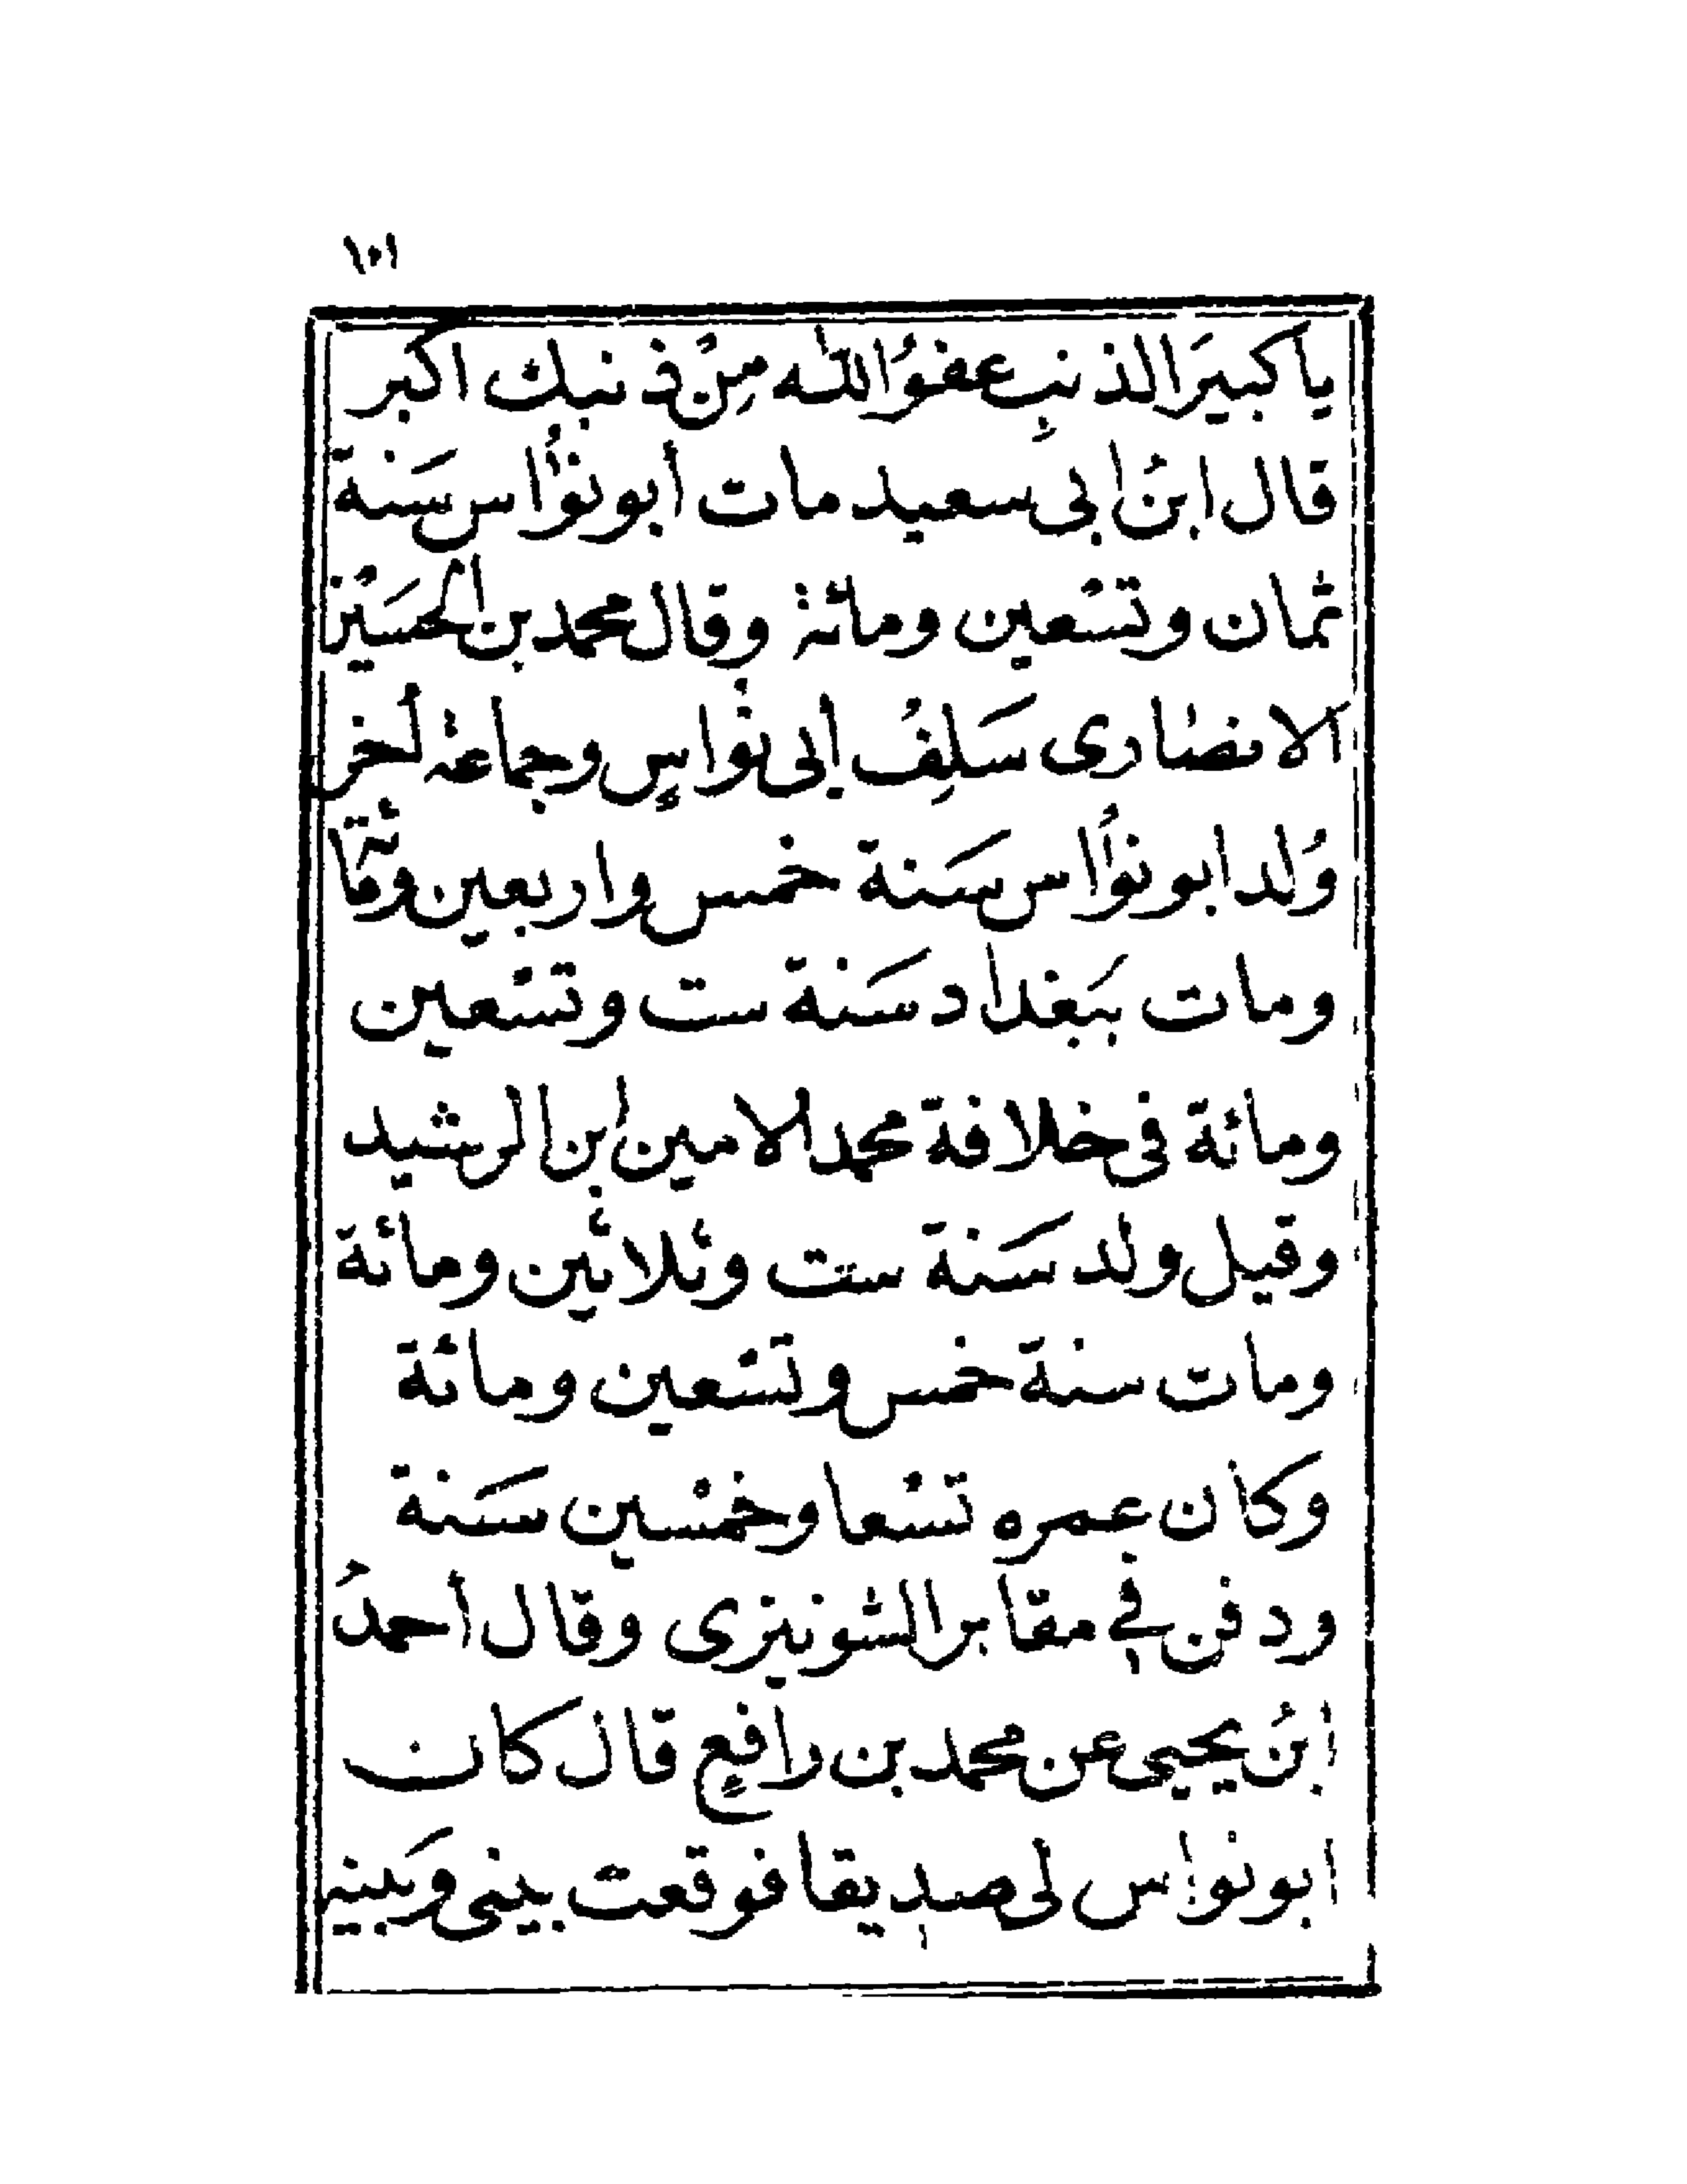 ١٠١
ياكبيرَ الذنبِ عفوُ الله مِنْ ذنبك اكبر
قال ابنُ ابى سعيد مات أبو نوُاس سَنة
ثمان وتسْعين ومائة وقال محمد بن الحسَيْن
الانصارى سَلِفُ أبى نواسٍ وجماعة أخر
وُلد ابو نوُاس سَنة خمس واربعين ومائة
ومات ببَغداد سَنة ست وتسْعين
ومائة فى خلافة محمد الامين ابن الرشيد
وقيل ولد سَنة ست وثلاثين ومائة
ومات سنة خمس وتسْعين ومائة
وكان عمره تسْعا وخمْسين سَنة
ودفن في مقابر الشونيزى وقال أحمدُ
ابنُ يحيى عن محمد بن رافعٍ قال كان
ابو نواس لى صديقا فوقعت بينى وَبينه